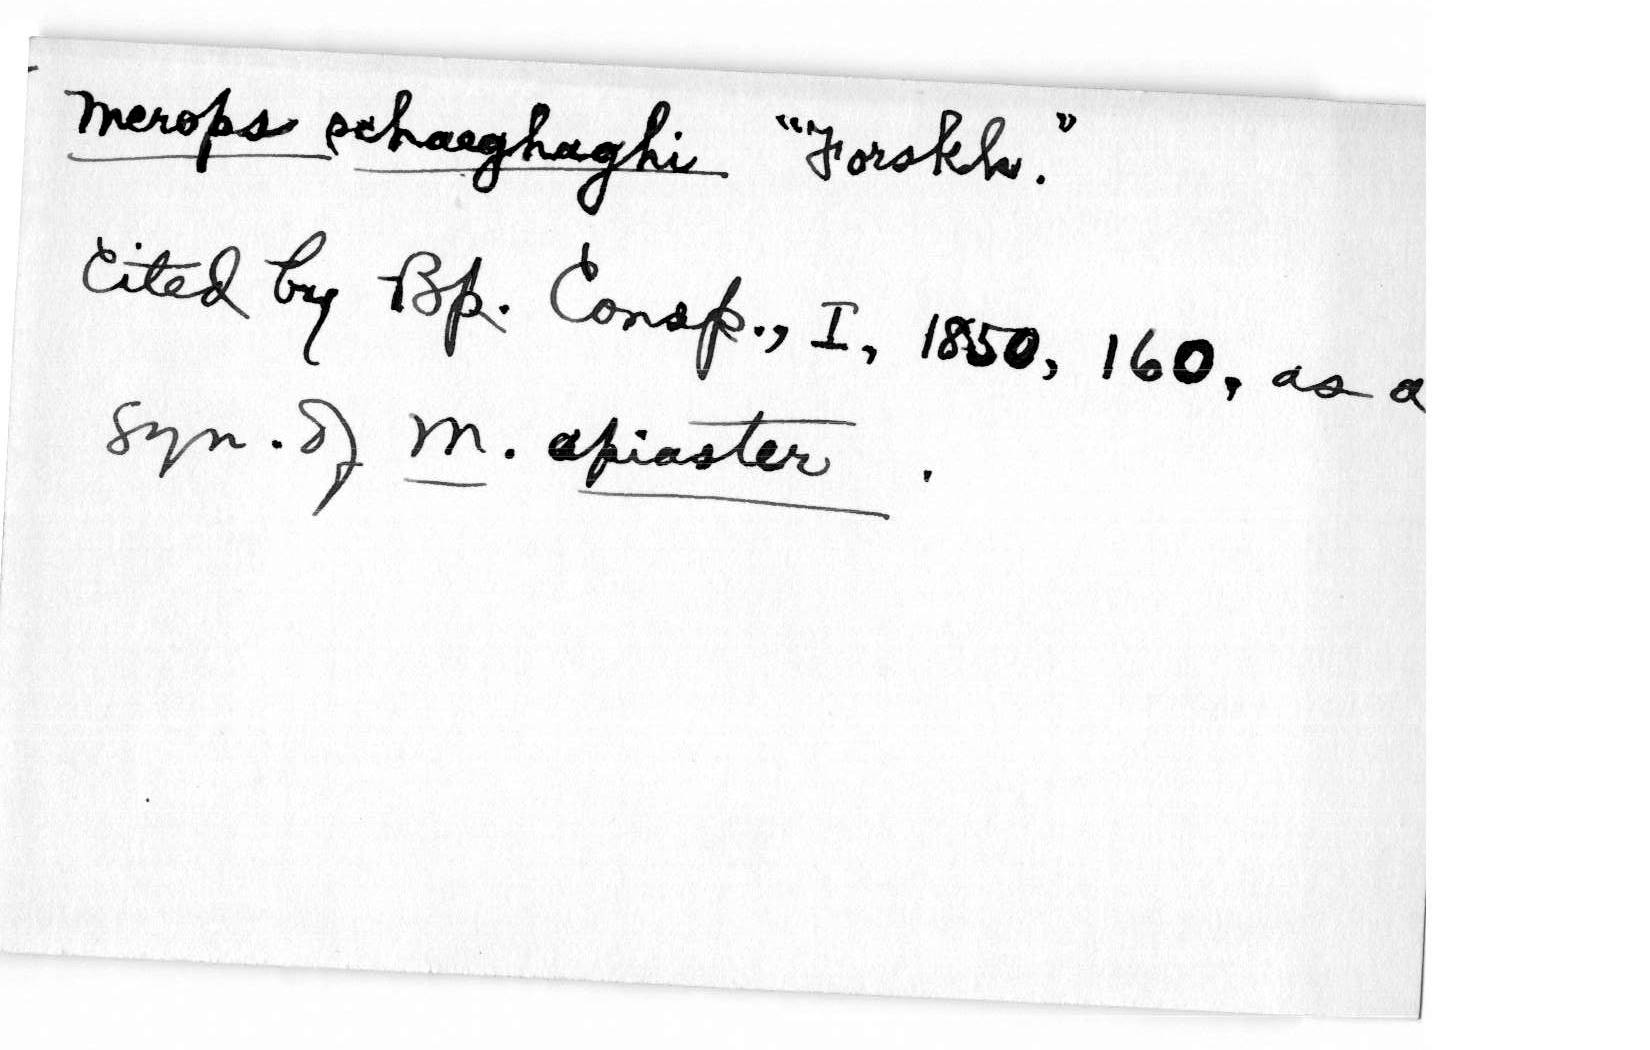 Merops schaeghaghi "Forskh."
Cited by Bp. Consp., I, 1850, 160, as a
syn. of M. apiaster.